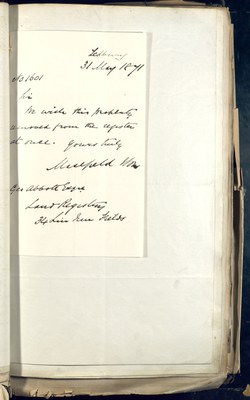 31 May 1871
No 1601
Sir
We wish this property
removed from the register
at once. Yours truly
Geo Abbott Esqre
Land Registry
34 Lin Inn Fields